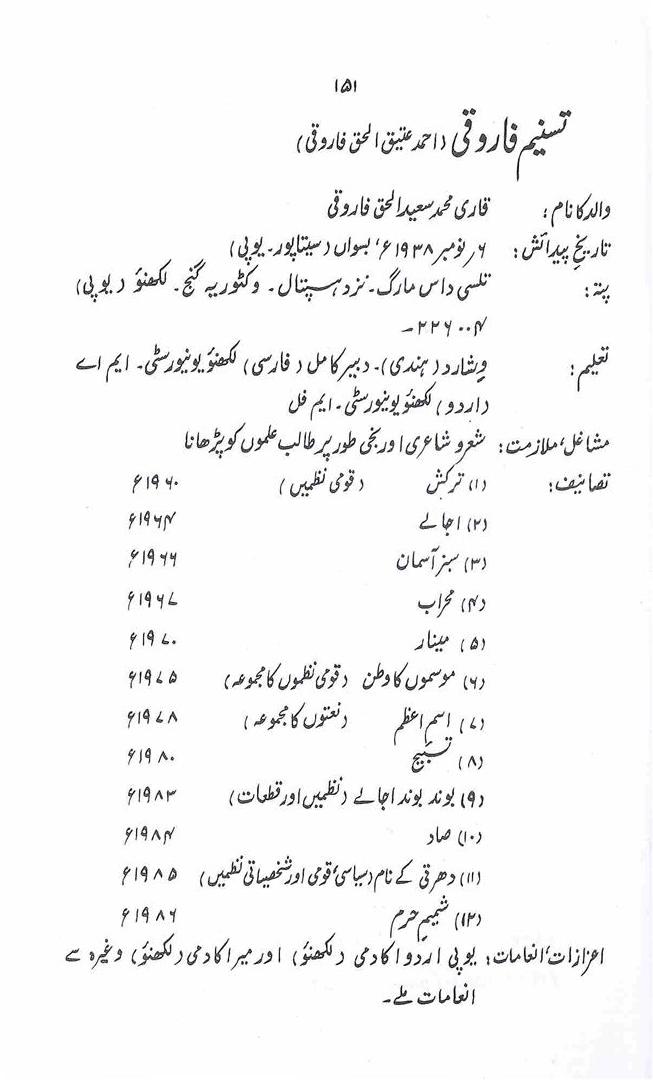 ۱۵۱
تسنیم فاروقی (احمد عتیق الحق فاروقی)
والد کا نام: قاری محمد سعید الحق فاروقی
تاریخِ پیدائش: ۶؍ نومبر ۱۹۳۸ء، بسواں (سیتاپور۔ یوپی)
پتہ: تلسی داس مارگ۔ نزد ہسپتال۔ وکٹوریہ گنج۔ لکھنؤ (یوپی)
۲۲۶۰۰۴۔
تعلیم: وِشارد (ہندی)۔ دبیر کامل (فارسی) لکھنؤ یونیورسٹی۔ ایم اے
(اردو) لکھنؤ یونیورسٹی۔ ایم فل
مشاغل، ملازمت: شعر و شاعری اور نجی طور پر طالب علموں کو پڑھانا
تصانیف: (۱) ترکش (قومی نظمیں) ۱۹۶۰ء
(۲) اجالے ۱۹۶۴ء
(۳) سبز آسمان ۱۹۶۶ء
(۴) محراب ۱۹۶۷ء
(۵) مینار ۱۹۷۰ء
(۶) موسموں کا وطن (قومی نظموں کا مجموعہ) ۱۹۷۵ء
(۷) اسمِ اعظم (نعتوں کا مجموعہ) ۱۹۷۸ء
(۸) تسبیح ۱۹۸۰ء
(۹) بوند بوند اجالے (نظمیں اور قطعات) ۱۹۸۳ء
(۱۰) صاد ۱۹۸۴ء
(۱۱) دھرتی کے نام (سیاسی، قومی اور شخصیاتی نظمیں) ۱۹۸۵ء
(۱۲) شمیمِ حرم ۱۹۸۶ء
اعزازات، انعامات: یوپی اردو اکادمی (لکھنؤ) اور میر اکادمی (لکھنؤ) وغیرہ سے
انعامات ملے۔